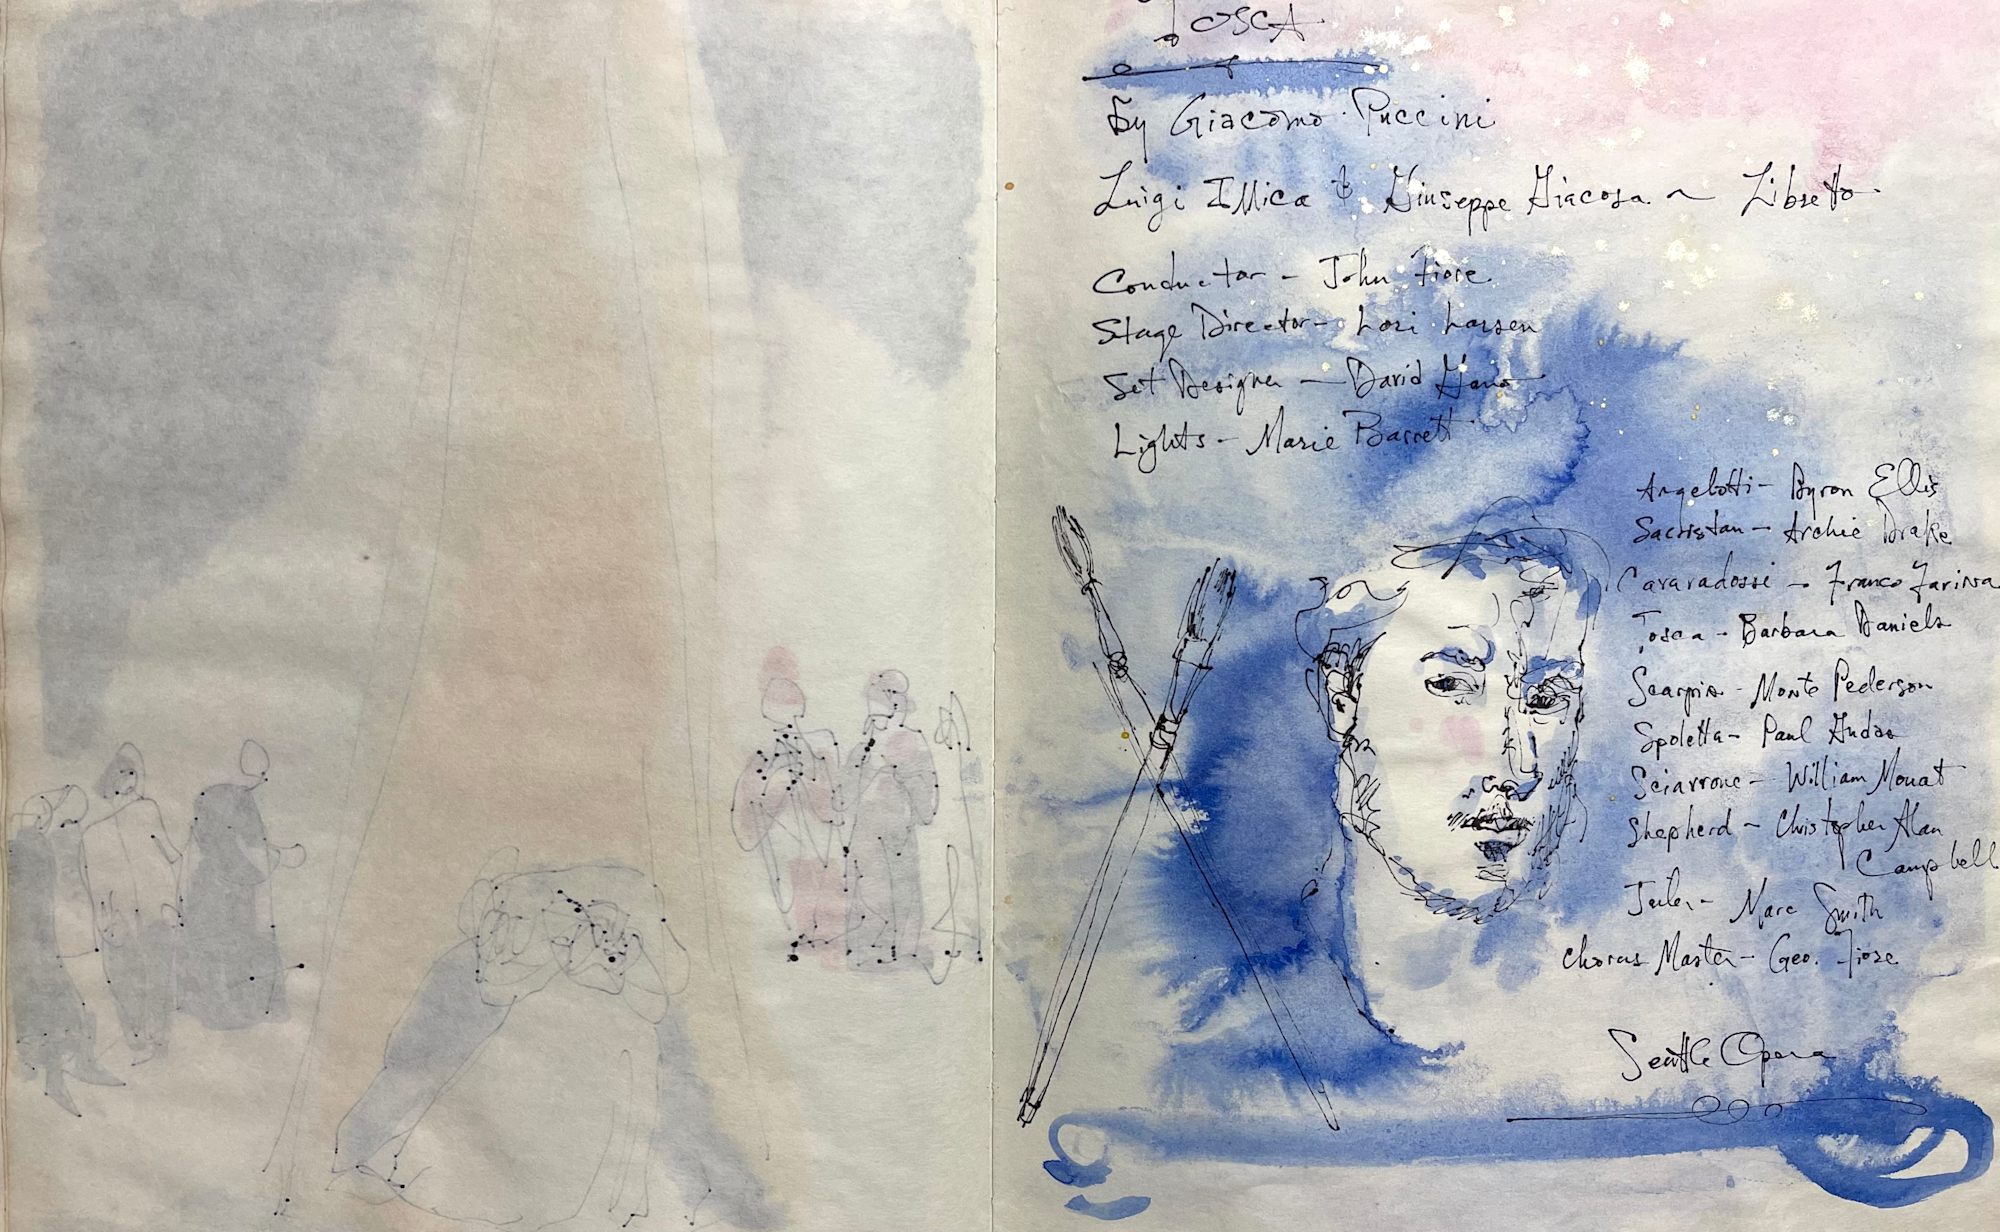 TOSCA
By Giacomo Puccini
Luigi Illica & Giuseppe Giacosa ~ Libretto
Conductor - John Fiore
Stage Director - Lori Larsen
Set Designer - David Gano
Lights - Marie Barrett
Angelotti - Byron Ellis
Sacristan - Archie Drake
Cavaradossi - Franco Farina
Tosca - Barbara Daniels
Scarpia - Monte Pederson
Spoletta - Paul Gudas
Sciarrone - William Mouat
Shepherd - Christopher Alan
Campbell
Jailer - Marc Smith
Chorus Master - Geo. Fiore
Seattle Opera